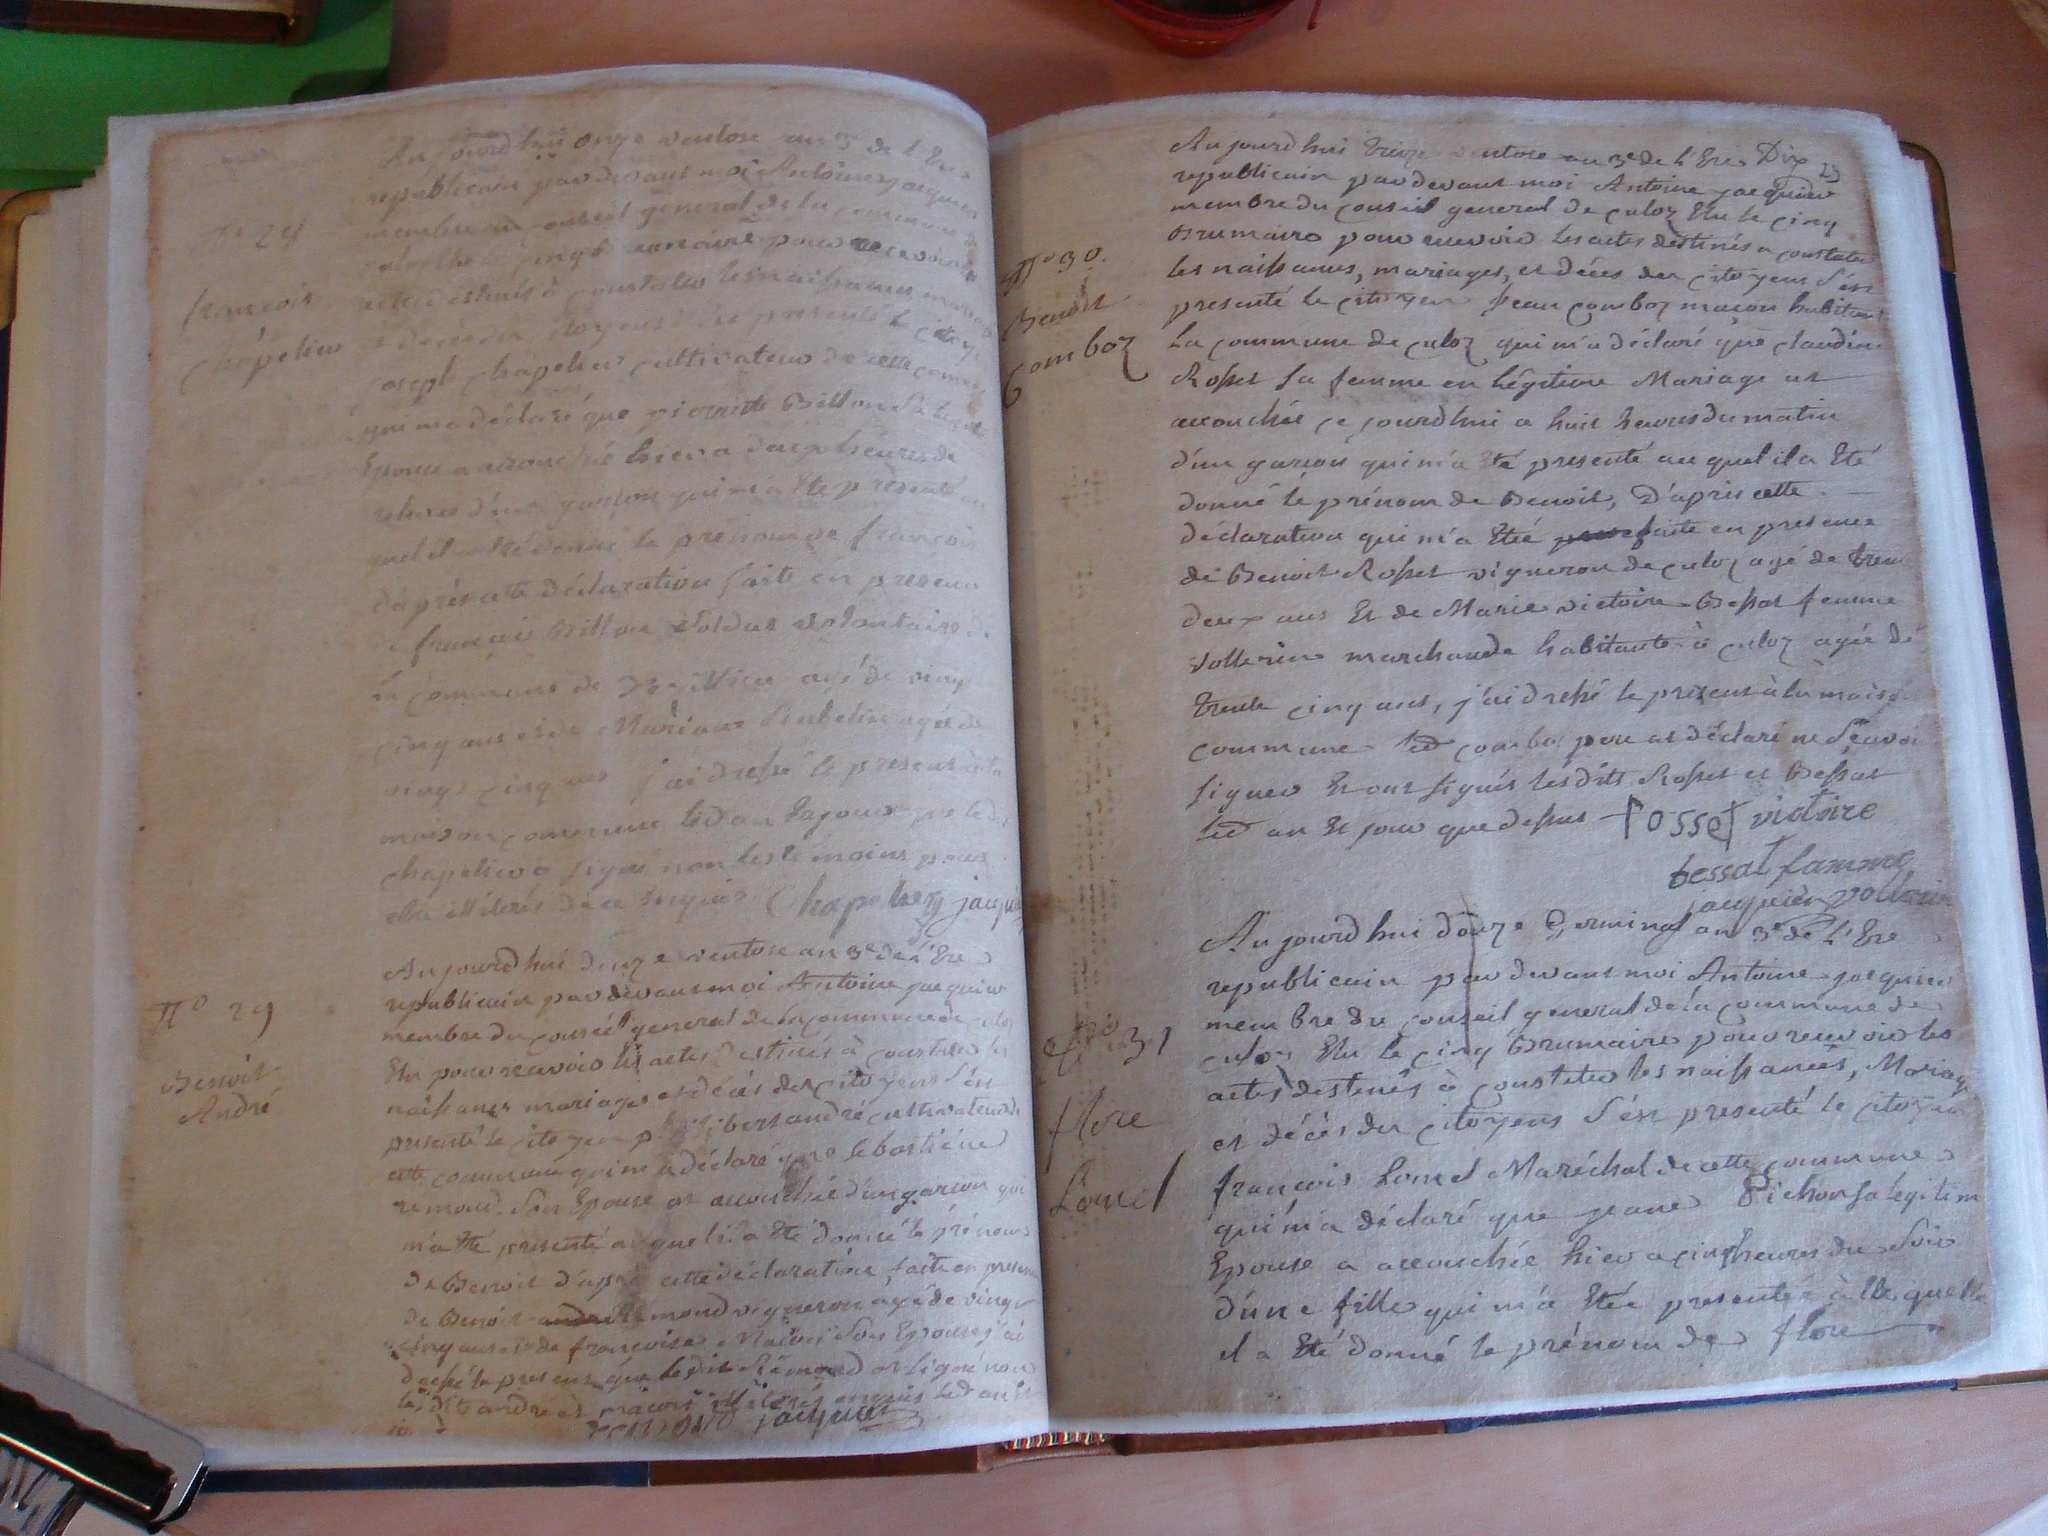 N° 28
françois
chapelier
Aujourd'huis onze ventose an 3e de l'Ere
republicain pardevant moi Antoine jacquier
membre du conseil general de la commune
pour recevoir
actes destinés à constater les naissances
et décès des citoyens s'est presenté le
joseph chapelier cultivateur de cette commune
qui m'a déclaré que pierrette Billon sa
Epouse a accouché hier a deux heures de
d'un garçon qui m'a été présenté au
quel il a été donné le prénom de françois
d'après cette déclaration faite en presence
de françois Billon soldat volontaire de
la commune de agé de vingt
cinq ans et de Mariane agée de
vingt cinq ans j'ai dressé le present à la
maison commune lesd an et jour que led
chapelier a signé non les témoins pour
etre illiterés de ce enquis Chapelier jacquier
N° 29
Benoit
André
Aujourd'hui douze ventose an 3e de l'Ere
republicain pardevant moi Antoine jacquier
membre du conseil general de la commune de culoz
Elu pour recevoir les actes destinés à constater les
naissances mariages et décès des citoyens s'est
presenté le citoyen philibert andré cultivateur de
cette commune qui m'a déclaré que sebastiene
remond son Epouse est accouchée d'un garcon qui
m'a été presenté auquel il a été donné le prénom
de Benoit d'après cette déclaration faite en presence
de Benoit andre Remond vigneron agé de vingt
cinq ans et de francoise son Epouse j'ai
dressé le present que ledit Rémond a signé non
lesdits andré et illiterés enquis led an et
remond jacquier
23
N° 30.
Benoit
Comboz
Aujourdhui treize ventose an 3e de l'Ere Dix
republicain pardevant moi Antoine jacquier
membre du conseil general de culoz Elu le cinq
Brumaire pour recevoir les actes destinés a constater
les naissances, mariages, et décès des citoyens s'est
presenté le citoyen jean comboz maçon habitant
La commune de culoz qui m'a déclaré que claudine
Rosset sa femme en Légitime Mariage est
accouchée ce jourdhui a huit heures du matin
d'un garcon qui m'a Eté presenté au quel il a Eté
donné le prénom de Benoit, D'après cette
déclaration qui m'a Etée faite en presence
de Benoit Rosset vigneron de culoz agé de trente
deux ans Et de Marie victoire Bessat femme
Vollerin marchande habitante à culoz agée de
trente cinq ans, j'ai dressé le present à la maison
commune led comboz pere at déclaré ne sçavoir
signer Et ont signés lesdits Rosset et Bessat
led an Et jour que dessus rosset victoire
bessat famme
jacquier vollerin
N° 31
flore
Lomel
Aujourdhui douze Germinal an 3e de l'Ere
republicain pardevant moi Antoine jacquier
membre du conseil general de la commune de
culoz Elu le cinq Brumaire pour recevoir les
actes destinés à constater les naissances, Mariages
et décès des citoyens s'est presenté le citoyen
francois Lomel Maréchal de cette commune
qui m'a déclaré que jeane Pichon sa legitime
Epouse a accouchée hier a cinq heures du soir
d'une fille qui m'a Etée presentée à la quelle
il a Eté donné le prénom de flore